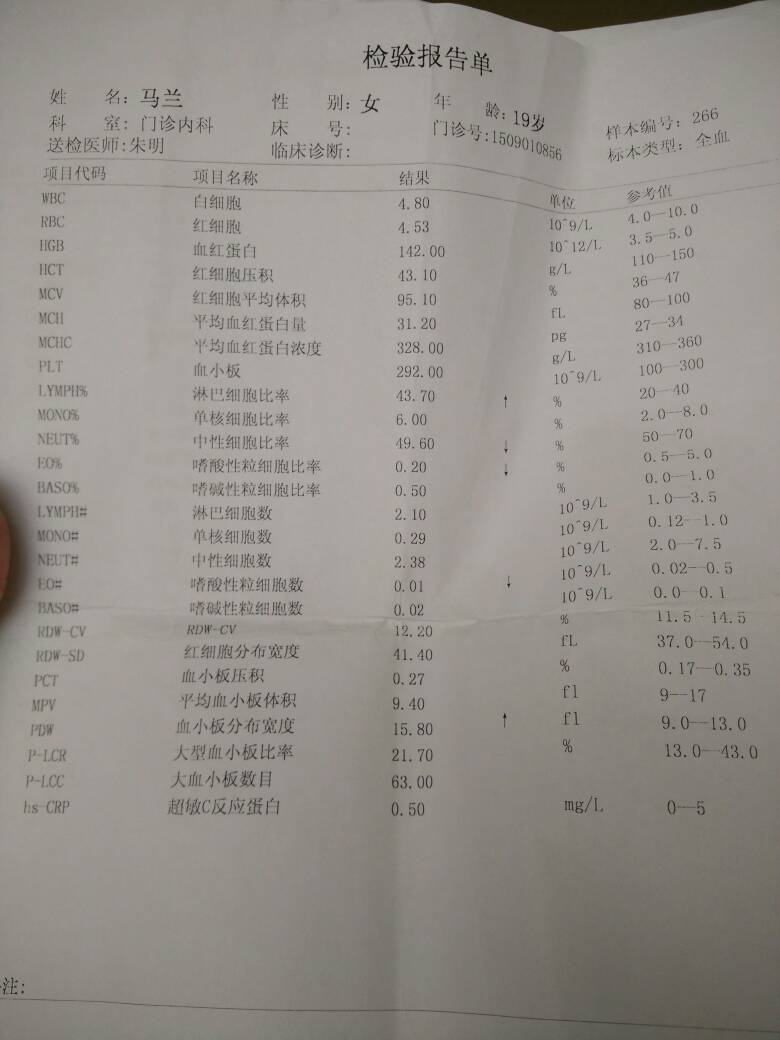 检验报告单
姓 名: 马兰 性 别: 女 年 龄: 19岁 样本编号: 266
科 室: 门诊内科 床 号: 门诊号:1509010856 标本类型: 全血
送检医师:朱明 临床诊断:
项目代码 项目名称 结果 单位 参考值
WBC 白细胞 4.80 10^9/L 4.0—10.0
RBC 红细胞 4.53 10^12/L 3.5—5.0
HGB 血红蛋白 142.00 g/L 110—150
HCT 红细胞压积 43.10 % 36—47
MCV 红细胞平均体积 95.10 fL 80—100
MCH 平均血红蛋白量 31.20 pg 27—34
MCHC 平均血红蛋白浓度 328.00 g/L 310—360
PLT 血小板 292.00 10^9/L 100—300
LYMPH% 淋巴细胞比率 43.70 ↑ % 20—40
MONO% 单核细胞比率 6.00 % 2.0—8.0
NEUT% 中性细胞比率 49.60 ↓ % 50—70
EO% 嗜酸性粒细胞比率 0.20 ↓ % 0.5—5.0
BASO% 嗜碱性粒细胞比率 0.50 % 0.0—1.0
LYMPH# 淋巴细胞数 2.10 10^9/L 1.0—3.5
MONO# 单核细胞数 0.29 10^9/L 0.12—1.0
NEUT# 中性细胞数 2.38 10^9/L 2.0—7.5
EO# 嗜酸性粒细胞数 0.01 ↓ 10^9/L 0.02—0.5
BASO# 嗜碱性粒细胞数 0.02 10^9/L 0.0—0.1
RDW-CV RDW-CV 12.20 % 11.5—14.5
RDW-SD 红细胞分布宽度 41.40 fL 37.0—54.0
PCT 血小板压积 0.27 % 0.17—0.35
MPV 平均血小板体积 9.40 fl 9—17
PDW 血小板分布宽度 15.80 ↑ fl 9.0—13.0
P-LCR 大型血小板比率 21.70 % 13.0—43.0
P-LCC 大血小板数目 63.00
hs-CRP 超敏C反应蛋白 0.50 mg/L 0—5
注: